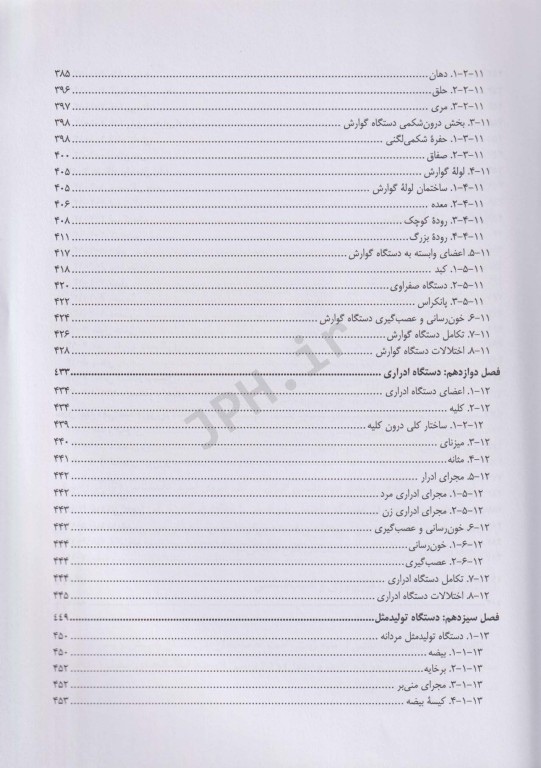 ۱۱-۲-۱. دهان ........ ۳۸۵
۱۱-۲-۲. حلق ........ ۳۹۶
۱۱-۲-۳. مری ........ ۳۹۷
۱۱-۳. بخش درون‌شکمی دستگاه گوارش ........ ۳۹۸
۱۱-۳-۱. حفرۀ شکمی‌لگنی ........ ۳۹۸
۱۱-۳-۲. صفاق ........ ۴۰۰
۱۱-۴. لولۀ گوارش ........ ۴۰۵
۱۱-۴-۱. ساختمان لولۀ گوارش ........ ۴۰۵
۱۱-۴-۲. معده ........ ۴۰۶
۱۱-۴-۳. رودۀ کوچک ........ ۴۰۸
۱۱-۴-۴. رودۀ بزرگ ........ ۴۱۱
۱۱-۵. اعضای وابسته به دستگاه گوارش ........ ۴۱۷
۱۱-۵-۱. کبد ........ ۴۱۸
۱۱-۵-۲. دستگاه صفراوی ........ ۴۲۰
۱۱-۵-۳. پانکراس ........ ۴۲۲
۱۱-۶. خون‌رسانی و عصب‌گیری دستگاه گوارش ........ ۴۲۴
۱۱-۷. تکامل دستگاه گوارش ........ ۴۲۶
۱۱-۸. اختلالات دستگاه گوارش ........ ۴۲۸
فصل دوازدهم: دستگاه ادراری ........ ۴۳۳
۱۲-۱. اعضای دستگاه ادراری ........ ۴۳۴
۱۲-۲. کلیه ........ ۴۳۴
۱۲-۲-۱. ساختار کلی درون کلیه ........ ۴۳۹
۱۲-۳. میزنای ........ ۴۴۰
۱۲-۴. مثانه ........ ۴۴۱
۱۲-۵. مجرای ادرار ........ ۴۴۲
۱۲-۵-۱. مجرای ادراری مرد ........ ۴۴۲
۱۲-۵-۲. مجرای ادراری زن ........ ۴۴۳
۱۲-۶. خون‌رسانی و عصب‌گیری ........ ۴۴۳
۱۲-۶-۱. خون‌رسانی ........ ۴۴۴
۱۲-۶-۲. عصب‌گیری ........ ۴۴۴
۱۲-۷. تکامل دستگاه ادراری ........ ۴۴۴
۱۲-۸. اختلالات دستگاه ادراری ........ ۴۴۵
فصل سیزدهم: دستگاه تولیدمثل ........ ۴۴۹
۱۳-۱. دستگاه تولیدمثل مردانه ........ ۴۵۰
۱۳-۱-۱. بیضه ........ ۴۵۰
۱۳-۱-۲. برخایه ........ ۴۵۲
۱۳-۱-۳. مجرای منی‌بر ........ ۴۵۲
۱۳-۱-۴. کیسۀ بیضه ........ ۴۵۳
JPH.ir